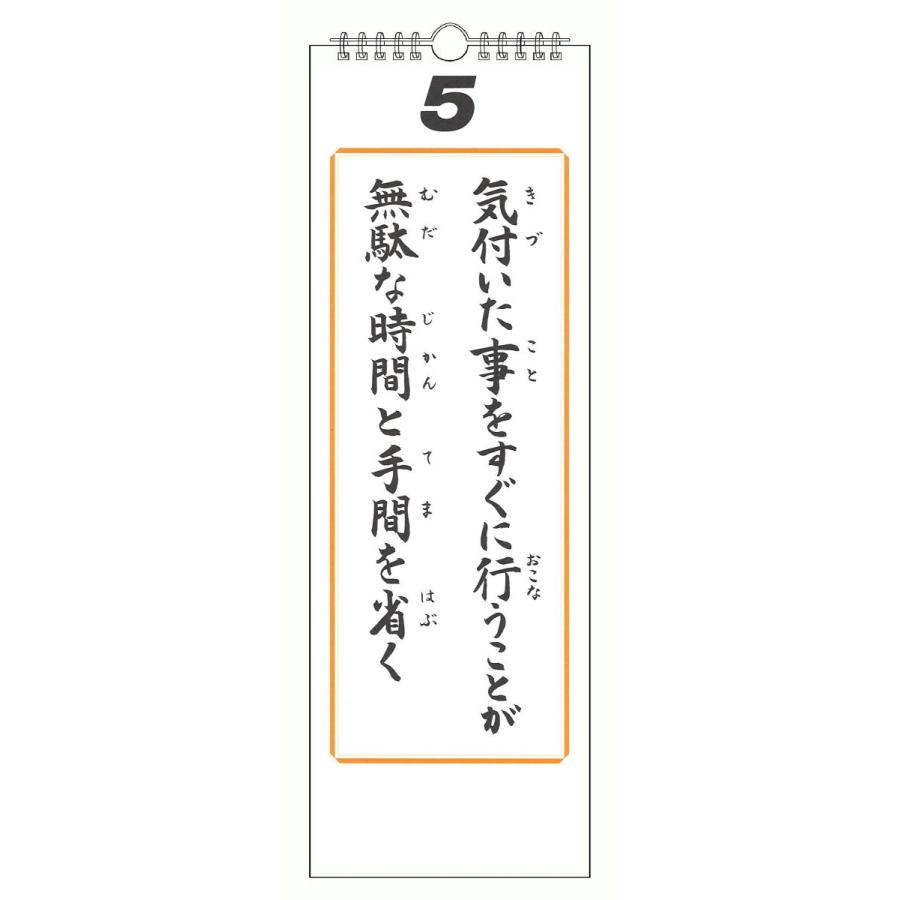 5
気付いた事をすぐに行うことが
きづ こと おこな
無駄な時間と手間を省く
むだ じかん てま はぶ